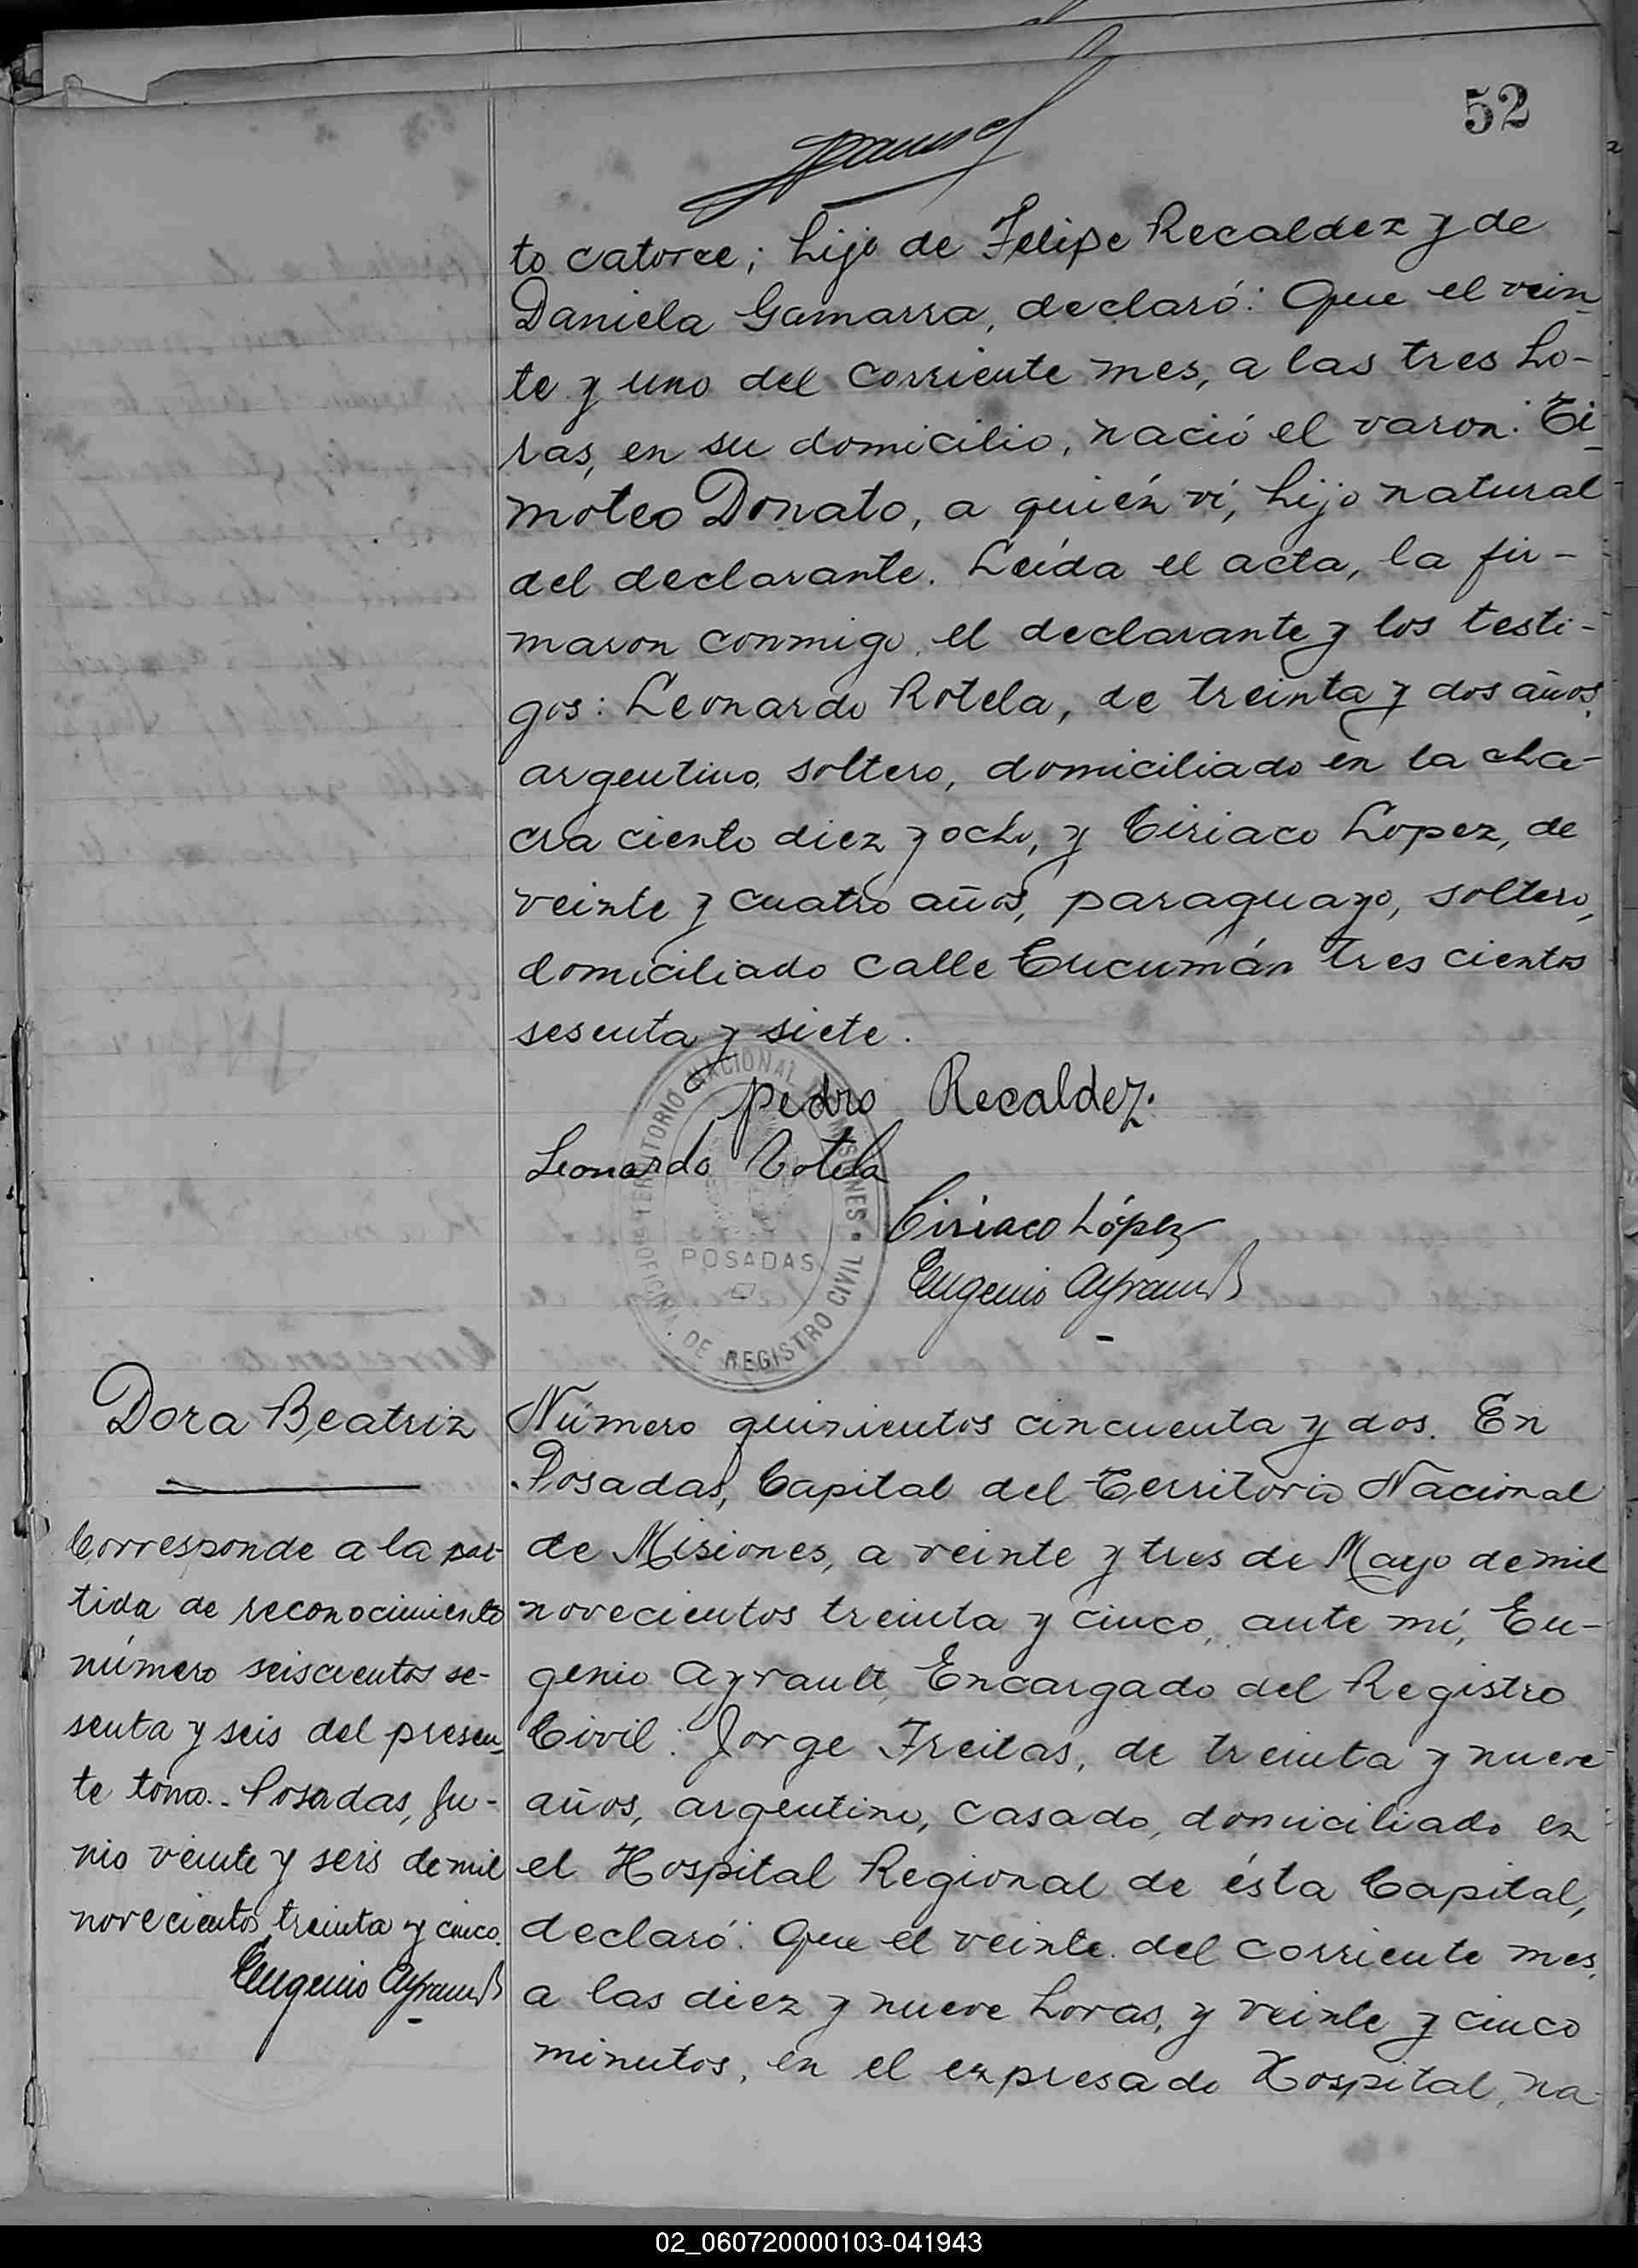 52
to catorce; hijo de Felipe Recaldez y de
Daniela Gamarra, declaró: Que el vein
te y uno del corriente mes, a las tres ho-
ras, en su domicilio, nació el varon: Ti
moteo Donato, a quién ví, hijo natural
del declarante. Leída el acta, la fir-
maron conmigo, el declarante y los testi-
gos: Leonardo Rotela, de treinta y dos años,
argentino, soltero, domiciliado en la cha-
cra ciento diez y ocho, y Ciriaco Lopez, de
veinte y cuatro años, paraguayo, soltero,
domiciliado calle Tucumán tres cientos
sesenta y siete.
pedro Recaldez.
Leonardo Rotela
Ciriaco López
Eugenio Ayrault
OFICINA DE REGISTRO CIVIL
TERRITORIO NACIONAL MISIONES
POSADAS
Dora Beatriz
Corresponde a la par-
tida de reconocimiento
número seiscientos se-
senta y seis del presen
te tomo.- Posadas, Ju-
nio veinte y seis de mil
novecientos treinta y cinco.
Eugenio Ayrault
Número quinientos cincuenta y dos. En
Posadas, Capital del Territorio Nacional
de Misiones, a veinte y tres de Mayo de mil
novecientos treinta y cinco, ante mí, Eu-
genio Ayrault, Encargado del Registro
Civil: Jorge Freitas, de treinta y nueve
años, argentino, casado, domiciliado en
el Hospital Regional de ésta Capital,
declaró: Que el veinte del corriente mes,
a las diez y nueve horas, y veinte y cinco
minutos, en el expresado Hospital, na
02_060720000103-041943